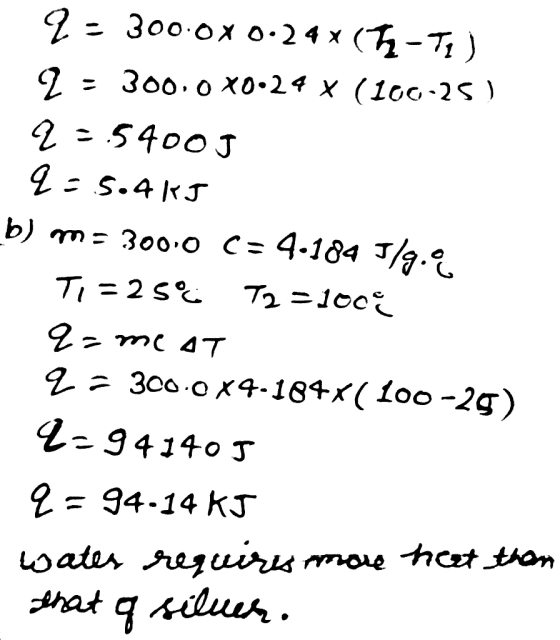 q = 300.0 x 0.24 x (T2 - T1)
q = 300.0 x 0.24 x (100-25)
q = 5400 J
q = 5.4 KJ
b) m = 300.0 C = 4.184 J/g.°C
T1 = 25°C T2 = 100°C
q = mc ΔT
q = 300.0 x 4.184 x (100 - 25)
q = 94140 J
q = 94.14 KJ
water requires more heat than
that of silver.